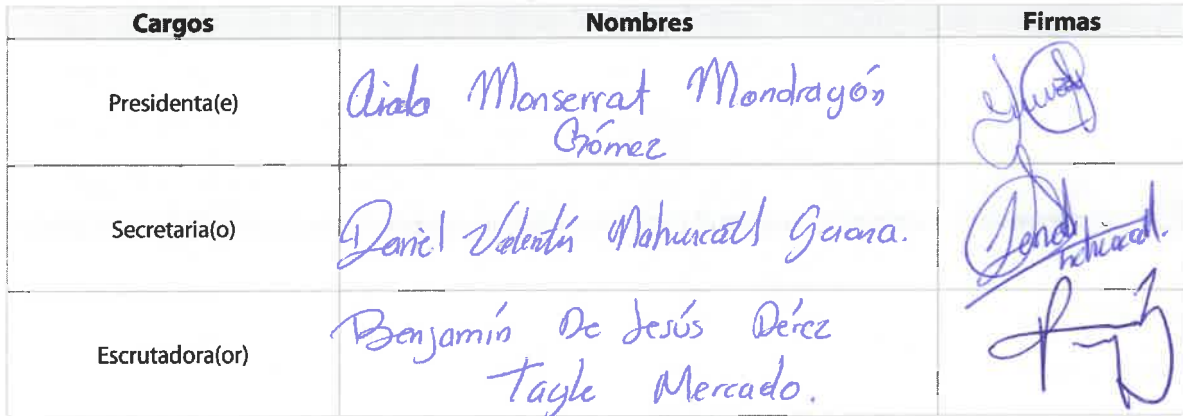 Cargos Nombres Firmas
Presidenta(e) Aida Monserrat Mondragón
Gómez
Secretaria(o) Daniel Valentín
Escrutadora(or) Benjamín De Jesús Pérez
Tagle Mercado.